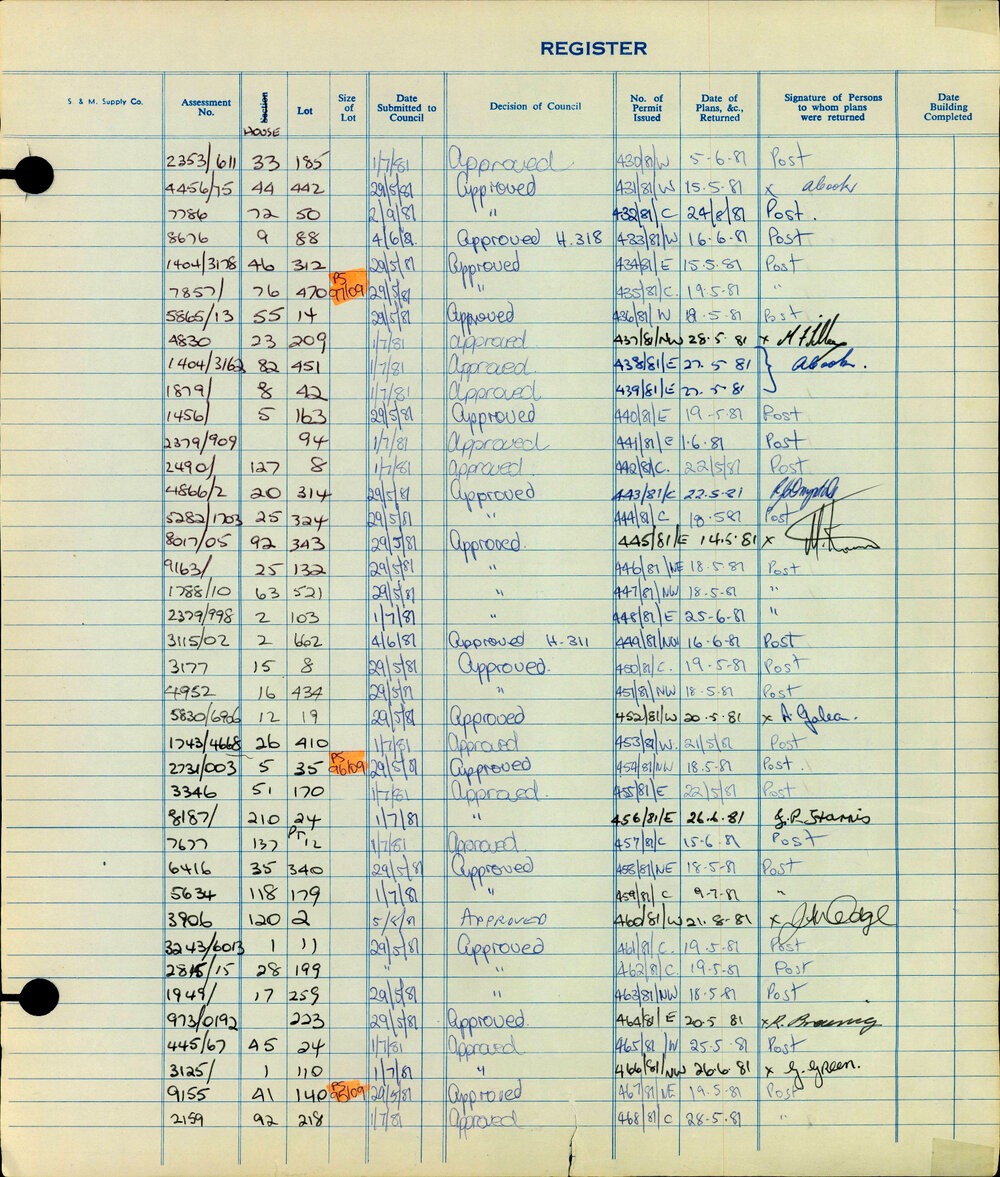 REGISTER
S. & M. Supply Co. Assessment No. Section HOUSE Lot Size of Lot Date Submitted to Council Decision of Council No. of Permit Issued Date of Plans, &c., Returned Signature of Persons to whom plans were returned Date Building Completed
2353/611 33 185 1/7/81 Approved 430/81/W 5-6-81 Post
4456/75 44 442 29/5/81 Approved 431/81/W 15.5.81 x
7786 72 50 2/9/81 " 432/81/C 24/8/81 Post.
8676 9 88 4/6/81. Approved H.318 433/81/W 16.6.81 Post
1404/3178 46 312 29/5/81 Approved 434/81/E 15.5.81 Post
7857/ 76 470 PS 97/09 29/5/81 " 435/81/C. 19.5.81 "
5865/13 55 14 29/5/81 Approved 436/81/W .5.81 Post
4830 23 209 1/7/81 Approved. 437/81/NW 28.5.81 x
1404/3162 82 451 1/7/81 Approved. 438/81/E 27.5.81
1879/ 8 42 1/7/81 Approved 439/81/E 27.5.81
1456/ 5 163 29/5/81 Approved 440/81/E 19.5.81 Post
2379/909 94 1/7/81 Approved 441/81/E 1.6.81 Post
2490/ 127 8 1/7/81 Approved. 442/81/C. 22/5/81 Post
4866/2 20 314 29/5/81 Approved 443/81/C 22.5.81
5282/1703 25 324 29/5/81 " 444/81/C .5.81 Post
8017/05 92 343 29/5/81 Approved. 445/81/E 14.5.81 x
9163/ 25 132 29/5/81 " 446/81/NE 18.5.81 Post
1788/10 63 521 29/5/81 " 447/81/NW 18.5.81 "
2379/998 2 103 1/7/81 " 448/81/E 25-6-81 "
3115/02 2 662 4/6/81 Approved H-311 449/81/NW 16-6-81 Post
3177 15 8 29/5/81 Approved. 450/81/C. 19.5.81 Post
4952 16 434 29/5/81 " 451/81/NW 18.5.81 Post
5830/6906 12 19 29/5/81 Approved 452/81/W 20.5.81 x A. Galea.
1743/4668 26 410 1/7/81 Approved 453/81/W. 21/5/81 Post
2731/003 5 35 PS 96/09 29/5/81 Approved 454/81/NW 18.5.81 Post.
3346 51 170 1/7/81 Approved. 455/81/E 22/5/81 Post
8187/ 210 24 1/7/81 " 456/81/E 26.6.81
7677 137 Pt 12 1/7/81 Approved. 457/81/C 15.6.81 Post
6416 35 340 29/5/81 Approved 458/81/NE 18.5.81 Post
5634 118 179 1/7/81 " 459/81/C 9.7.81 "
3906 120 2 5/8/81 APPROVED 460/81/W 21.8.81 x
3243/6013 1 11 29/5/81 Approved 461/81/C. 19.5.81 Post
2815/15 28 199 " " 462/81/C. 19.5.81 Post
1949/ 17 259 29/5/81 " 463/81/NW 18.5.81 Post
973/0192 223 29/5/81 Approved. 464/81/E 20.5.81 x R. Browning
445/67 45 24 1/7/81 Approved 465/81/W 25.5.81 Post
3125/ 1 110 1/7/81 " 466/81/NW 26.6.81 x G. Green.
9155 41 140 PS 95/09 29/5/81 Approved 467/81/NE 19.5.81 Post
2159 92 218 1/7/81 Approved. 468/81/C 28.5.81 "